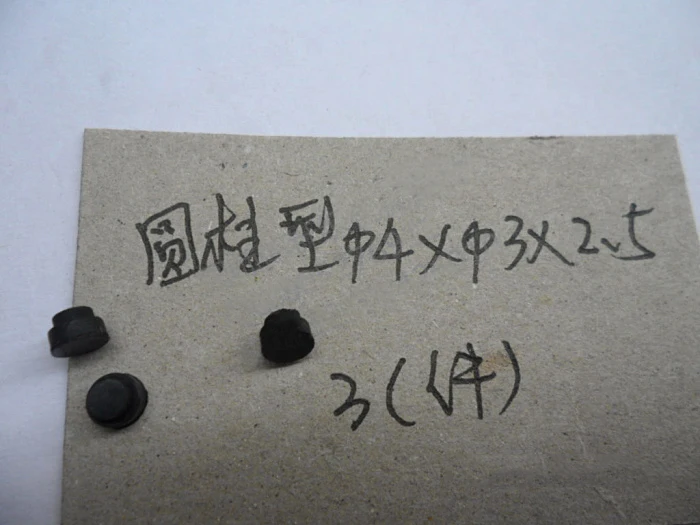 圆柱型φ4×φ3×2.5
3(件)